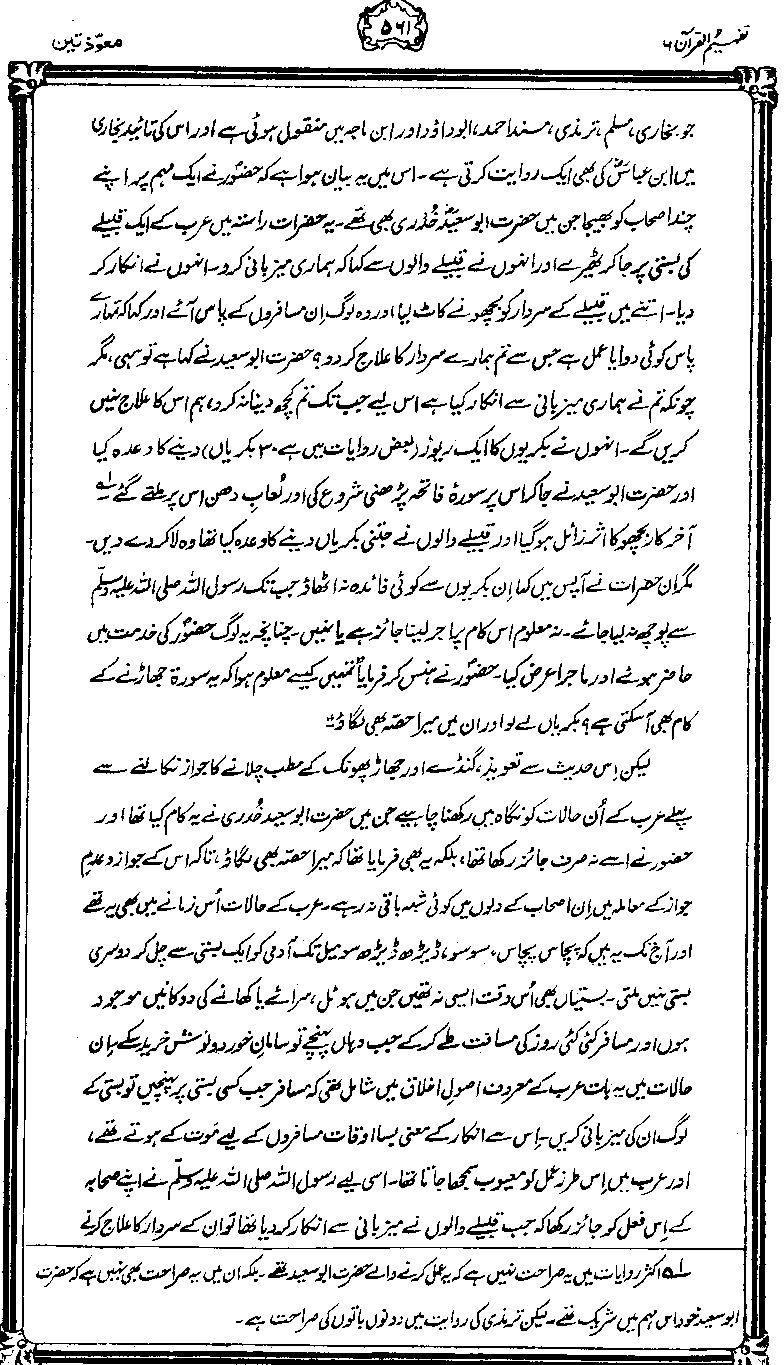 تفہیم القرآن ۶
۵۶۱
معوّذتین
جو بخاری، مسلم، ترمذی، مسند احمد، ابوداؤد اور ابن ماجہ میں منقول ہوئی ہے اور اس کی تائید بخاری
میں ابن عباسؓ کی بھی ایک روایت کرتی ہے۔ اس میں یہ بیان ہوا ہے کہ حضورؐ نے ایک مہم پر اپنے
چند اصحاب کو بھیجا جن میں حضرت ابو سعیدؓ خُدری بھی تھے۔ یہ حضرات راستہ میں عرب کے ایک قبیلے
کی بستی پر جا کر ٹھیرے اور انہوں نے قبیلے والوں سے کہا کہ ہماری میزبانی کرو۔ انہوں نے انکار کر
دیا۔ اتنے میں قبیلے کے سردار کو بچھو نے کاٹ لیا اور وہ لوگ اِن مسافروں کے پاس آئے اور کہا کہ تمہارے
پاس کوئی دوا یا عمل ہے جس سے تم ہمارے سردار کا علاج کر دو؟ حضرت ابو سعید نے کہا ہے تو سہی، مگر
چونکہ تم نے ہماری میزبانی سے انکار کیا ہے اس لیے جب تک تم کچھ دینا نہ کرو، ہم اس کا علاج نہیں
کریں گے۔ انہوں نے بکریوں کا ایک ریوڑ (بعض روایات میں ہے ۳۰ بکریاں) دینے کا وعدہ کیا
اور حضرت ابو سعید نے جا کر اس پر سورۂ فاتحہ پڑھنی شروع کی اور لُعابِ دہن اس پر ملتے گئے لے
آخر کار بچھو کا اثر زائل ہو گیا اور قبیلے والوں نے جتنی بکریاں دینے کا وعدہ کیا تھا وہ لا کر دے دیں۔
مگر ان حضرات نے آپس میں کہا اِن بکریوں سے کوئی فائدہ نہ اٹھاؤ جب تک رسول اللہ صلی اللہ علیہ وسلّم
سے پوچھ نہ لیا جائے۔ نہ معلوم اس کام پر اجر لینا جائز ہے یا نہیں۔ چنانچہ یہ لوگ حضورؐ کی خدمت میں
حاضر ہوئے اور ماجرا عرض کیا۔ حضورؐ نے ہنس کر فرمایا "تمہیں کیسے معلوم ہوا کہ یہ سورۃ جھاڑنے کے
کام بھی آ سکتی ہے؟ بکریاں لے لو اور ان میں میرا حصّہ بھی لگاؤ"۔
لیکن اِس حدیث سے تعویذ، گنڈے اور جھاڑ پھونک کے مطب چلانے کا جواز نکالنے سے
پہلے عرب کے اُن حالات کو نگاہ میں رکھنا چاہیے جن میں حضرت ابو سعید خُدری نے یہ کام کیا تھا اور
حضور نے اسے نہ صرف جائز رکھا تھا، بلکہ یہ بھی فرمایا تھا کہ میرا حصّہ بھی لگاؤ، تاکہ اس کے جواز و عدمِ
جواز کے معاملہ میں اِن اصحاب کے دلوں میں کوئی شبہ باقی نہ رہے۔ عرب کے حالات اُس زمانے میں بھی یہ تھے
اور آج تک یہ ہیں کہ پچاس پچاس، سو سو، ڈیڑھ ڈیڑھ سو میل تک آدمی کو ایک بستی سے چل کر دوسری
بستی نہیں ملتی۔ بستیاں بھی اُس وقت ایسی نہ تھیں جن میں ہوٹل، سرائے یا کھانے کی دوکانیں موجود
ہوں اور مسافر کئی کئی روز کی مسافت طے کر کے جب وہاں پہنچے تو سامانِ خورد و نوش خرید سکے۔ اِن
حالات میں یہ بات عرب کے معروف اصولِ اخلاق میں شامل تھی کہ مسافر جب کسی بستی پر پہنچیں تو بستی کے
لوگ ان کی میزبانی کریں۔ اِس سے انکار کے معنی بسا اوقات مسافروں کے لیے موت کے ہوتے تھے،
اور عرب میں اِس طرزِ عمل کو معیوب سمجھا جاتا تھا۔ اسی لیے رسول اللہ صلی اللہ علیہ وسلّم نے اپنے صحابہ
کے اِس فعل کو جائز رکھا کہ جب قبیلے والوں نے میزبانی سے انکار کر دیا تھا تو ان کے سردار کا علاج کرنے
لے اکثر روایات میں یہ صراحت نہیں ہے کہ یہ عمل کرنے والے حضرت ابو سعید تھے۔ بلکہ ان میں یہ صراحت بھی نہیں ہے کہ حضرت
ابو سعید خود اس مہم میں شریک تھے۔ لیکن ترمذی کی روایت میں دونوں باتوں کی صراحت ہے۔